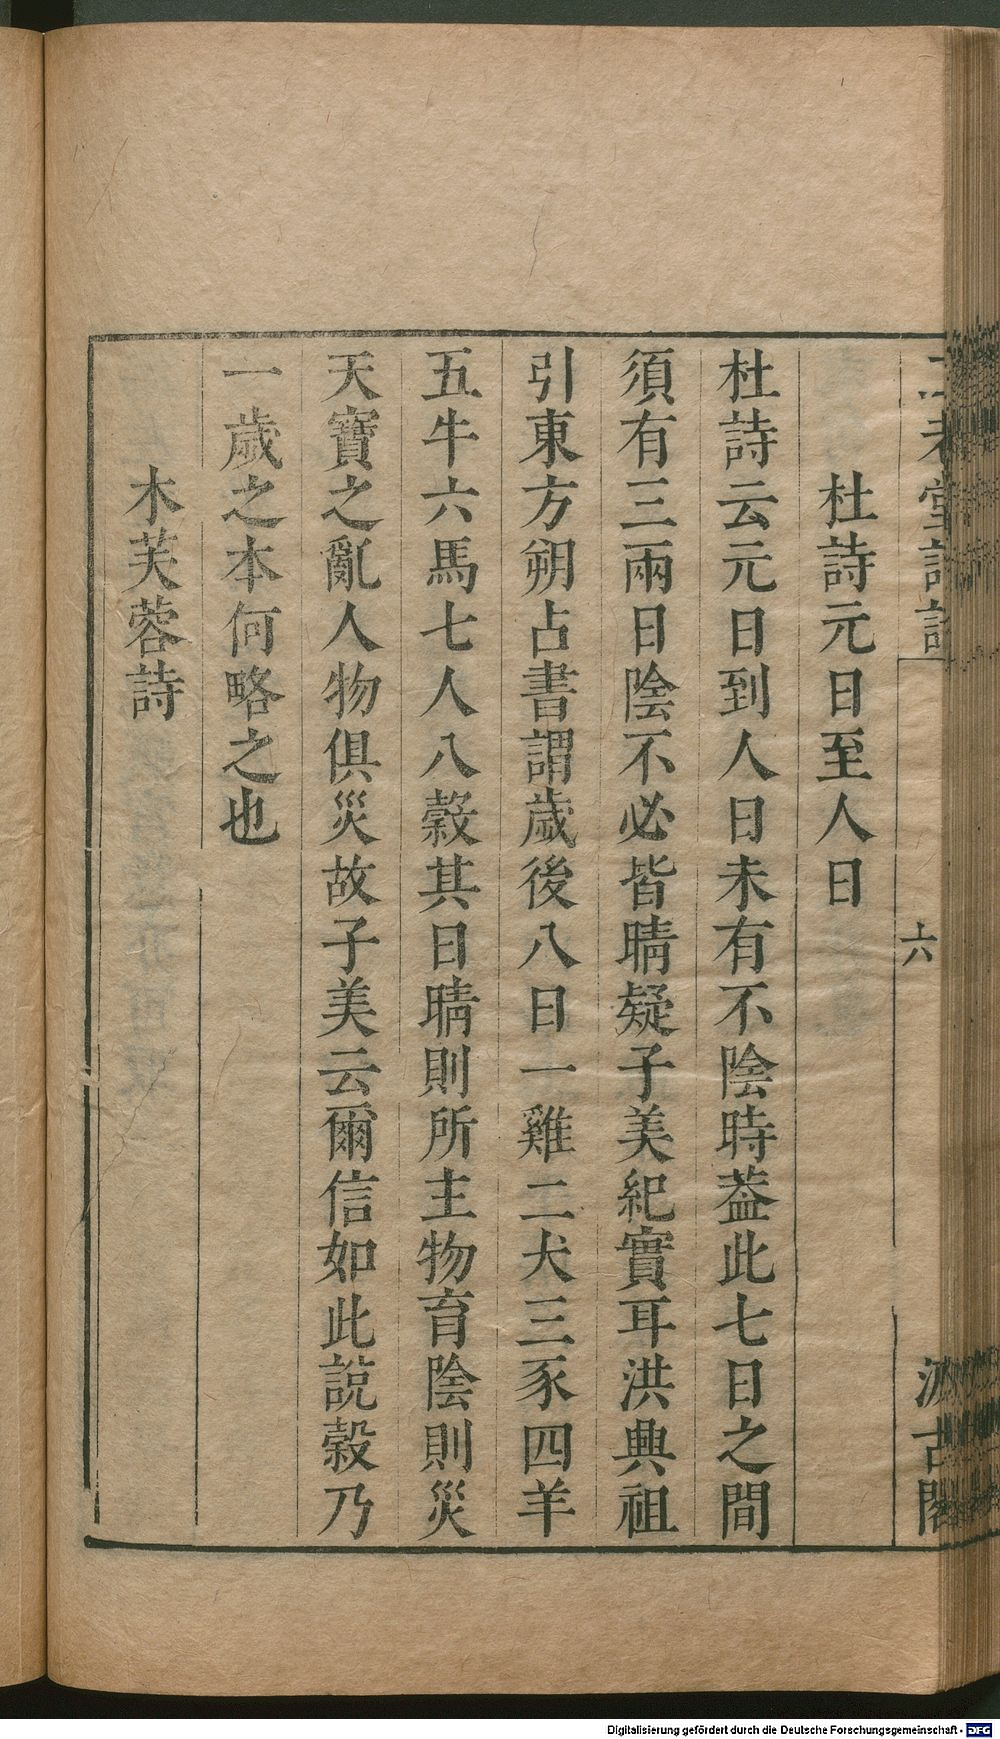 二老堂詩話
六
汲古閣
杜詩元日至人日
杜詩云元日到人日未有不陰時葢此七日之間
須有三兩日陰不必皆晴疑子美紀實耳洪興祖
引東方朔占書謂歲後八日一雞二犬三豕四羊
五牛六馬七人八穀其日晴則所主物育陰則災
天寶之亂人物俱災故子美云爾信如此說穀乃
一歲之本何略之也
木芙蓉詩
Digitalisierung gefördert durch die Deutsche Forschungsgemeinschaft - DFG